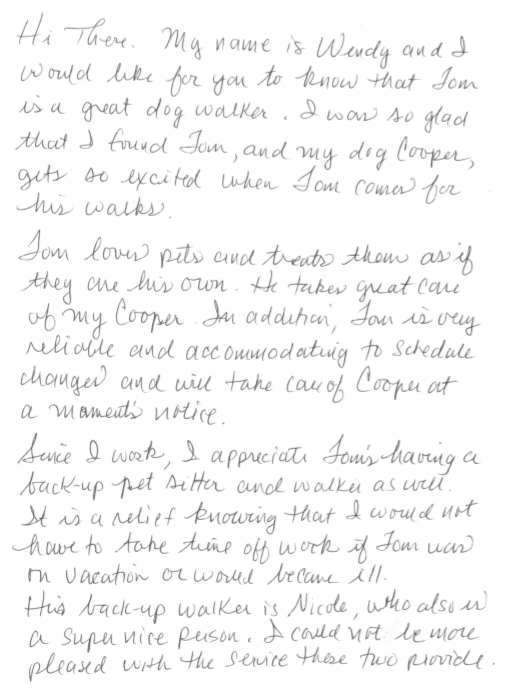 Hi There. My name is Wendy and I
would like for you to know that Tom
is a great dog walker. I was so glad
that I found Tom, and my dog Cooper,
gets so excited when Tom comes for
his walks.
Tom loves pets and treats them as if
they are his own. He takes great care
of my Cooper. In addition, Tom is very
reliable and accommodating to schedule
changes and will take care of Cooper at
a moment's notice.
Since I work, I appreciate Tom's having a
back-up pet sitter and walker as well.
It is a relief knowing that I would not
have to take time off work if Tom was
on vacation or would became ill.
His back-up walker is Nicole, who also is
a super nice person. I could not be more
pleased with the service these two provide.